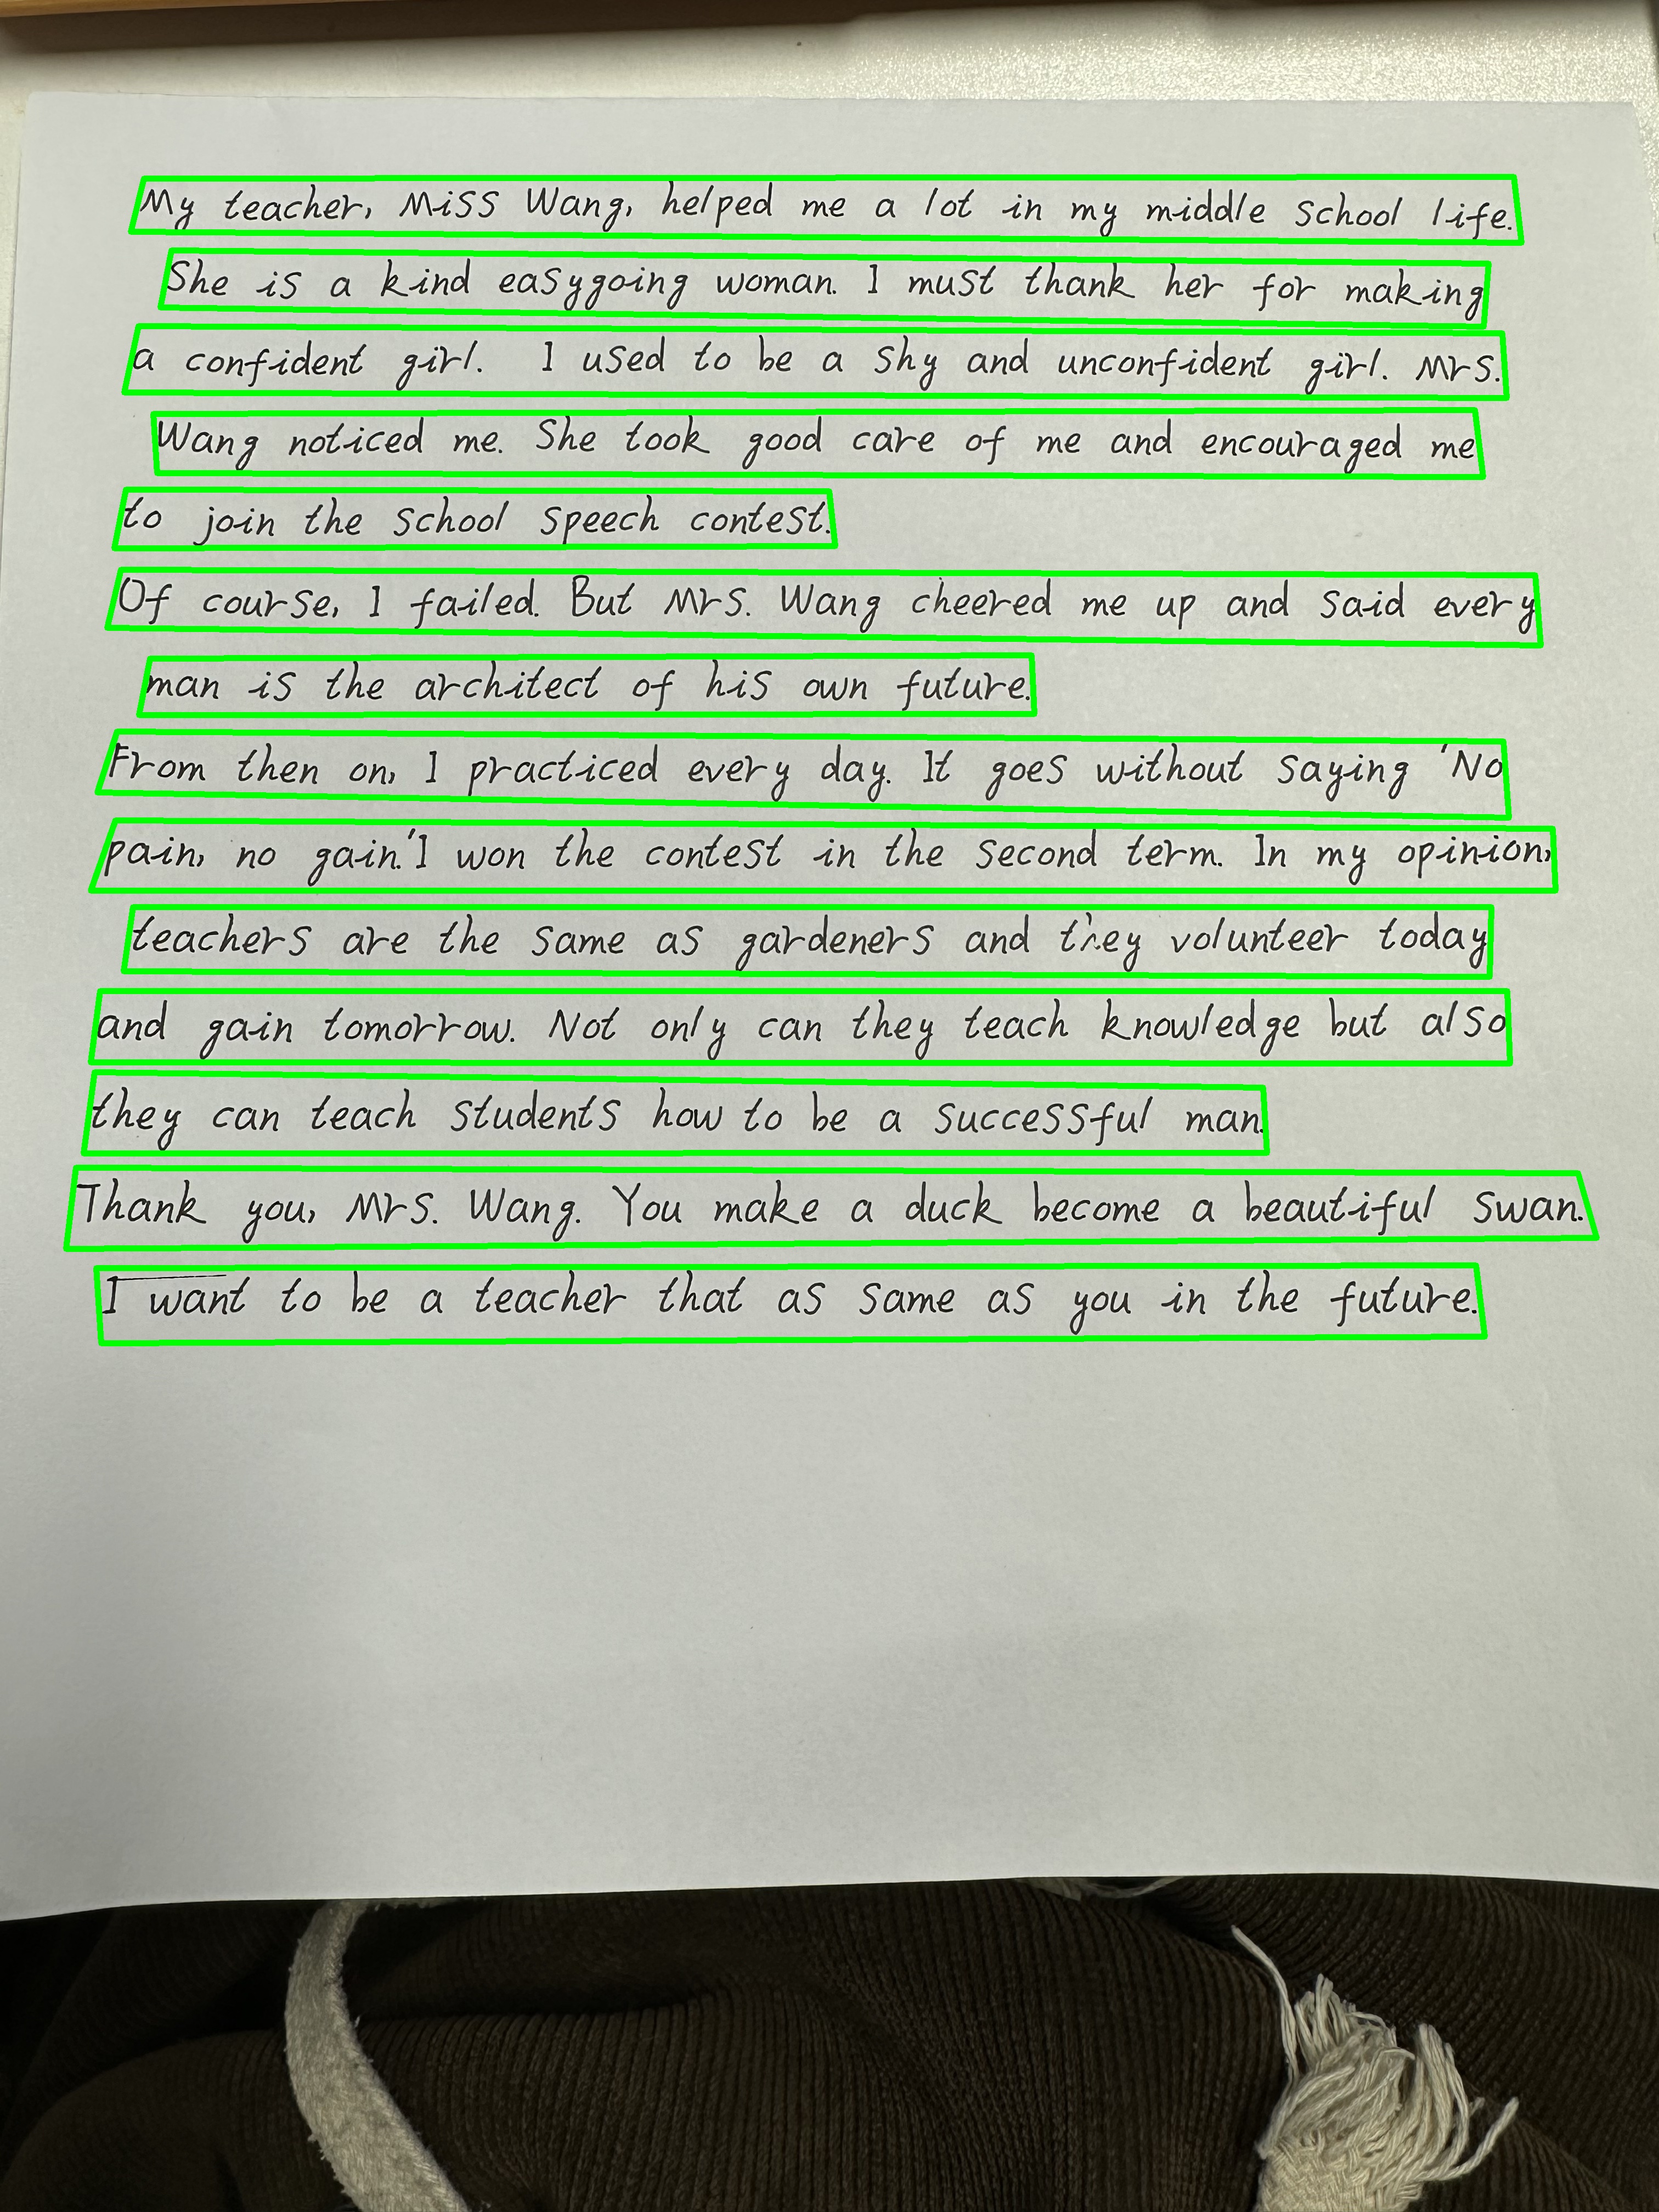 My teacher, Miss Wang, helped me a lot in my middle school life.
She is a kind easygoing woman. I must thank her for making
a confident girl. I used to be a shy and unconfident girl. Mrs.
Wang noticed me. She took good care of me and encouraged me
to join the school speech contest.
Of course, I failed. But Mrs. Wang cheered me up and said every
man is the architect of his own future.
From then on, I practiced every day. It goes without saying 'No
pain, no gain.' I won the contest in the second term. In my opinion,
teachers are the same as gardeners and they volunteer today
and gain tomorrow. Not only can they teach knowledge but also
they can teach students how to be a successful man.
Thank you, Mrs. Wang. You make a duck become a beautiful swan.
I want to be a teacher that as same as you in the future.